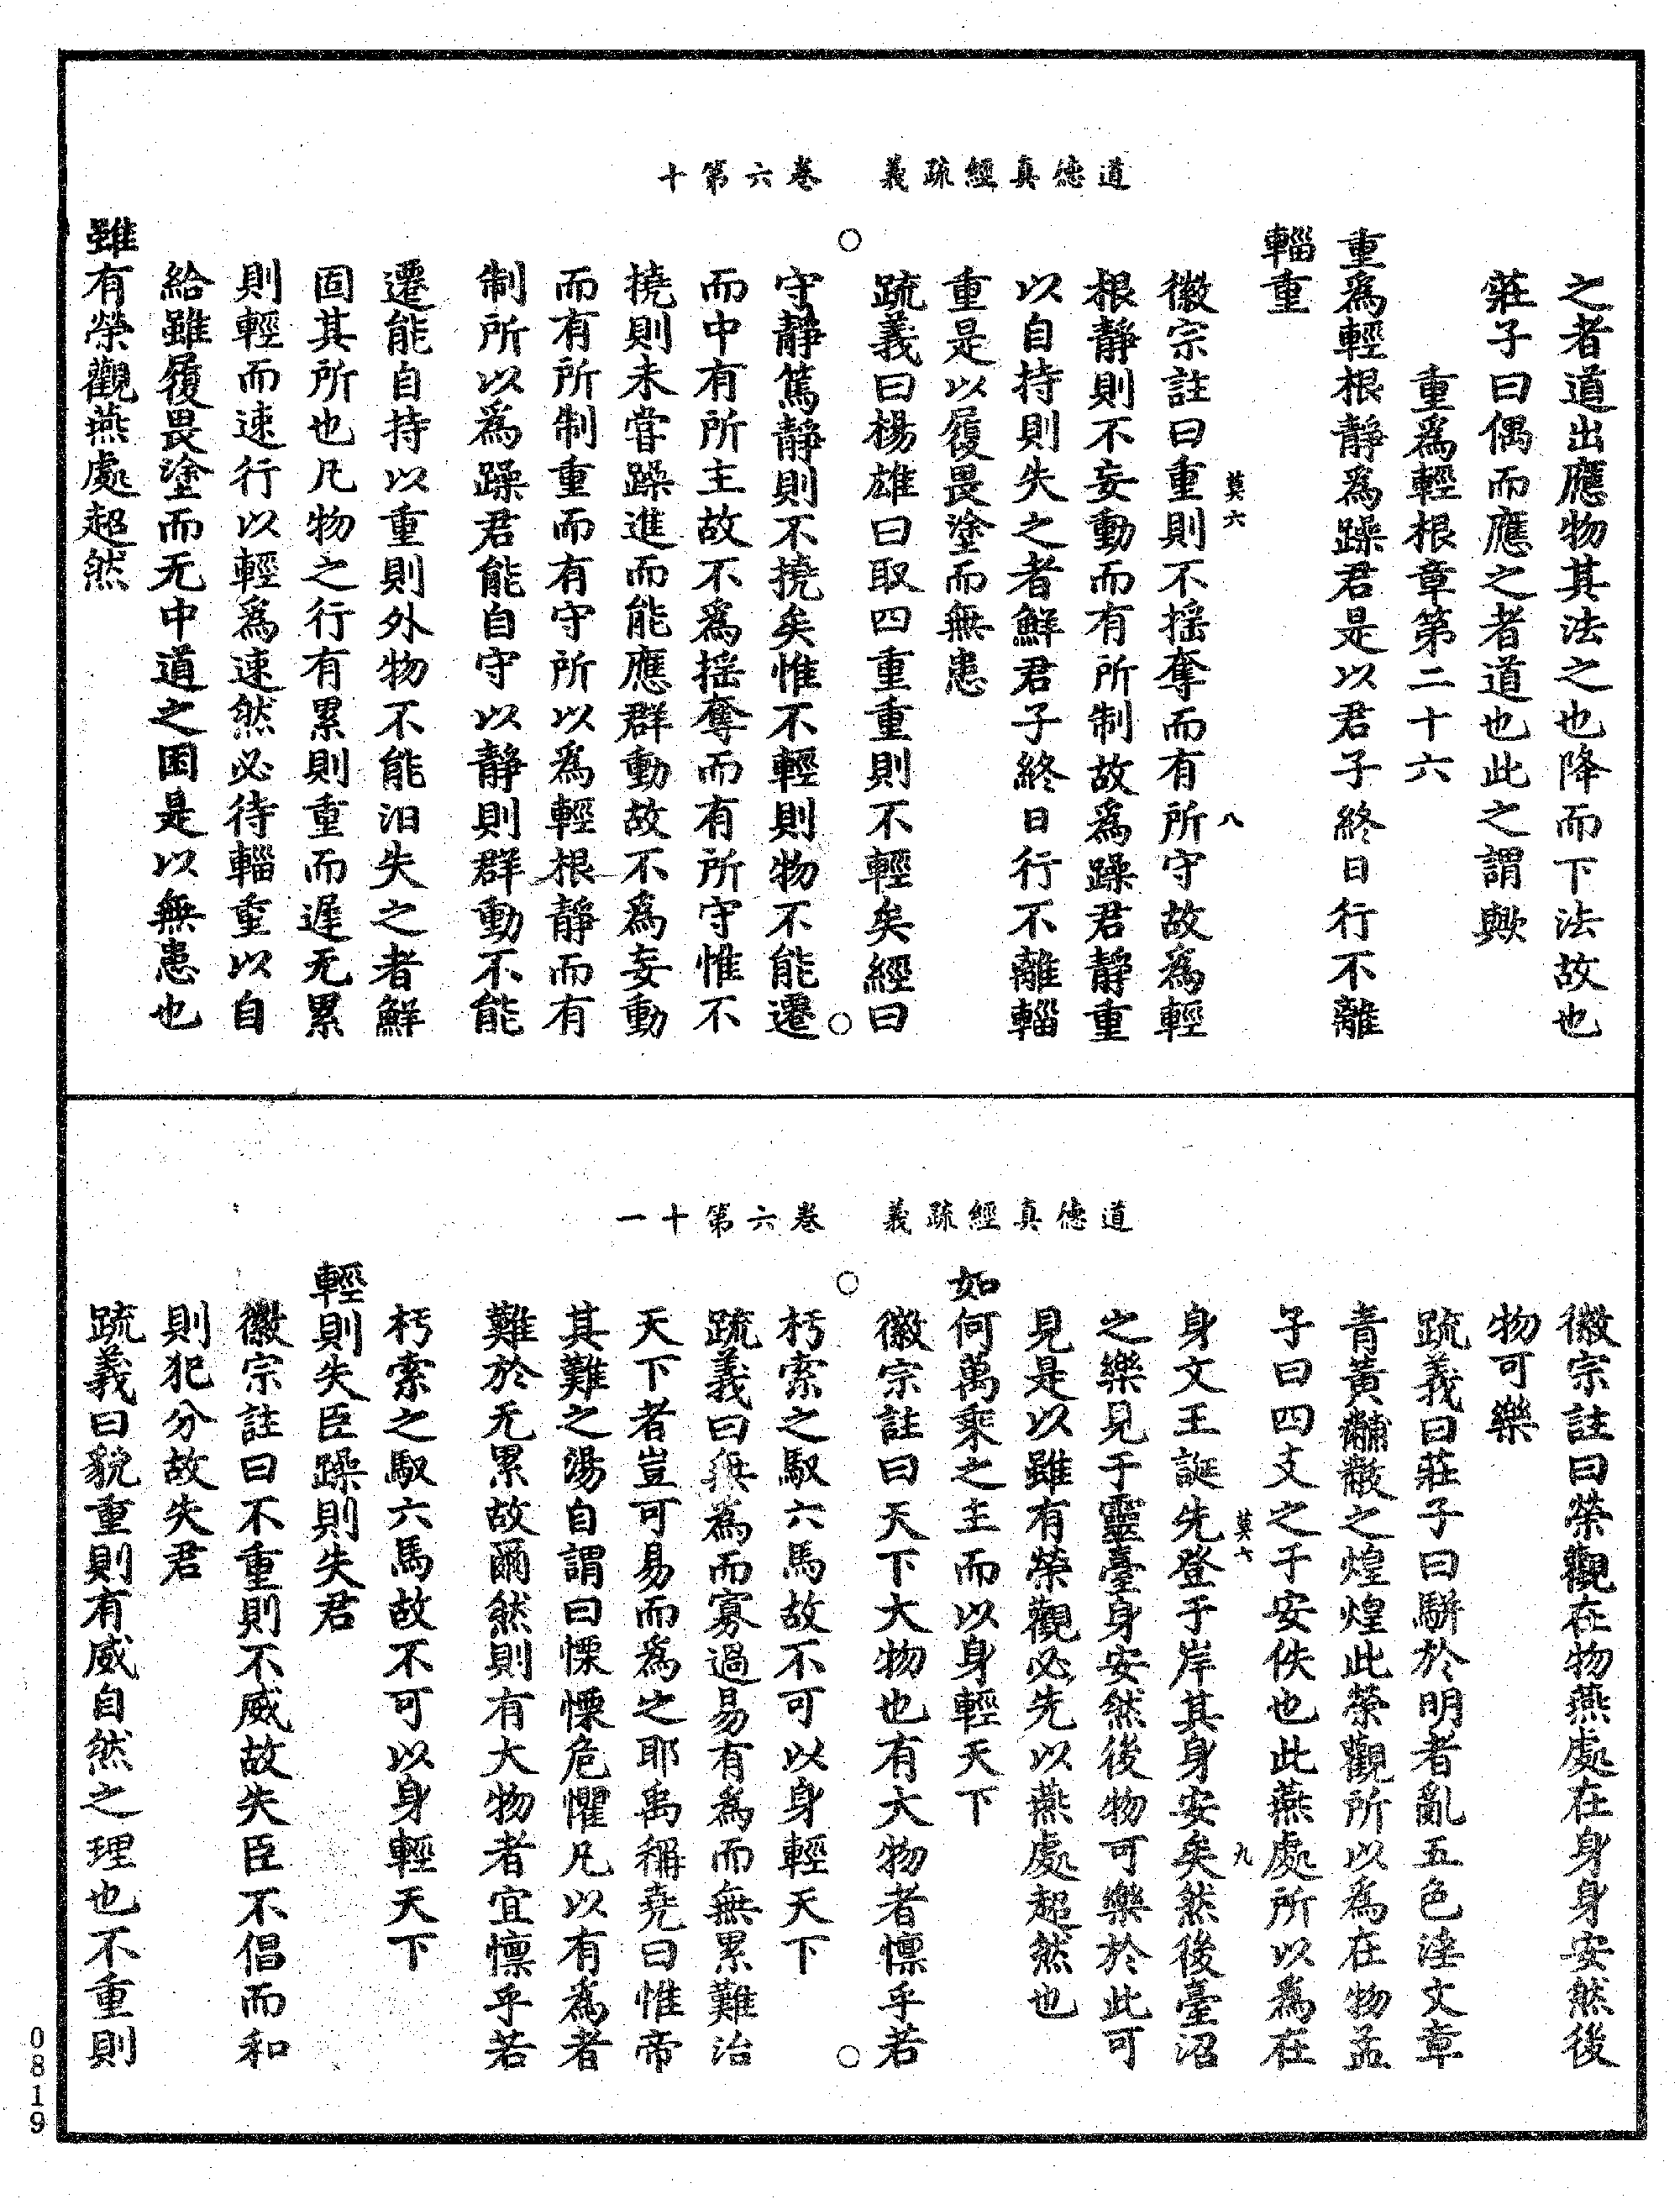 道德真經疏義　卷六第十
之者道出應物其法之也降而下法故也
莊子曰偶而應之者道也此之謂歟
重爲輕根章第二十六
重爲輕根靜爲躁君是以君子終日行不離
輜重
莫六　八
徽宗註曰重則不摇奪而有所守故爲輕
根靜則不妄動而有所制故爲躁君靜重
以自持則失之者鮮君子終日行不離輜
重是以履畏塗而無患
疏義曰楊雄曰取四重重則不輕矣經曰
守靜篤靜則不撓矣惟不輕則物不能遷
而中有所主故不爲摇奪而有所守惟不
撓則未嘗躁進而能應群動故不爲妄動
而有所制重而有守所以爲輕根靜而有
制所以爲躁君能自守以靜則群動不能
遷能自持以重則外物不能汨失之者鮮
固其所也凡物之行有累則重而遲无累
則輕而速行以輕爲速然必待輜重以自
給雖履畏塗而无中道之困是以無患也
雖有榮觀燕處超然
道德真經疏義　卷六第十一
徽宗註曰榮觀在物燕處在身身安然後
物可樂
疏義曰莊子曰駢於明者亂五色淫文章
青黃黼黻之煌煌此榮觀所以為在物孟
子曰四支之于安佚也此燕處所以為在
莫六　九
身文王誕先登于岸其身安矣然後臺沼
之樂見于靈臺身安然後物可樂於此可
見是以雖有榮觀必先以燕處超然也
如何萬乘之主而以身輕天下
徽宗註曰天下大物也有大物者懍乎若
朽索之馭六馬故不可以身輕天下
疏義曰無為而寡過易有為而無累難治
天下者豈可易而為之耶禹稱堯曰惟帝
其難之湯自謂曰慄慄危懼凡以有為者
難於无累故爾然則有大物者宜懍乎若
朽索之馭六馬故不可以身輕天下
輕則失臣躁則失君
徽宗註曰不重則不威故失臣不倡而和
則犯分故失君
疏義曰貌重則有威自然之理也不重則
0819